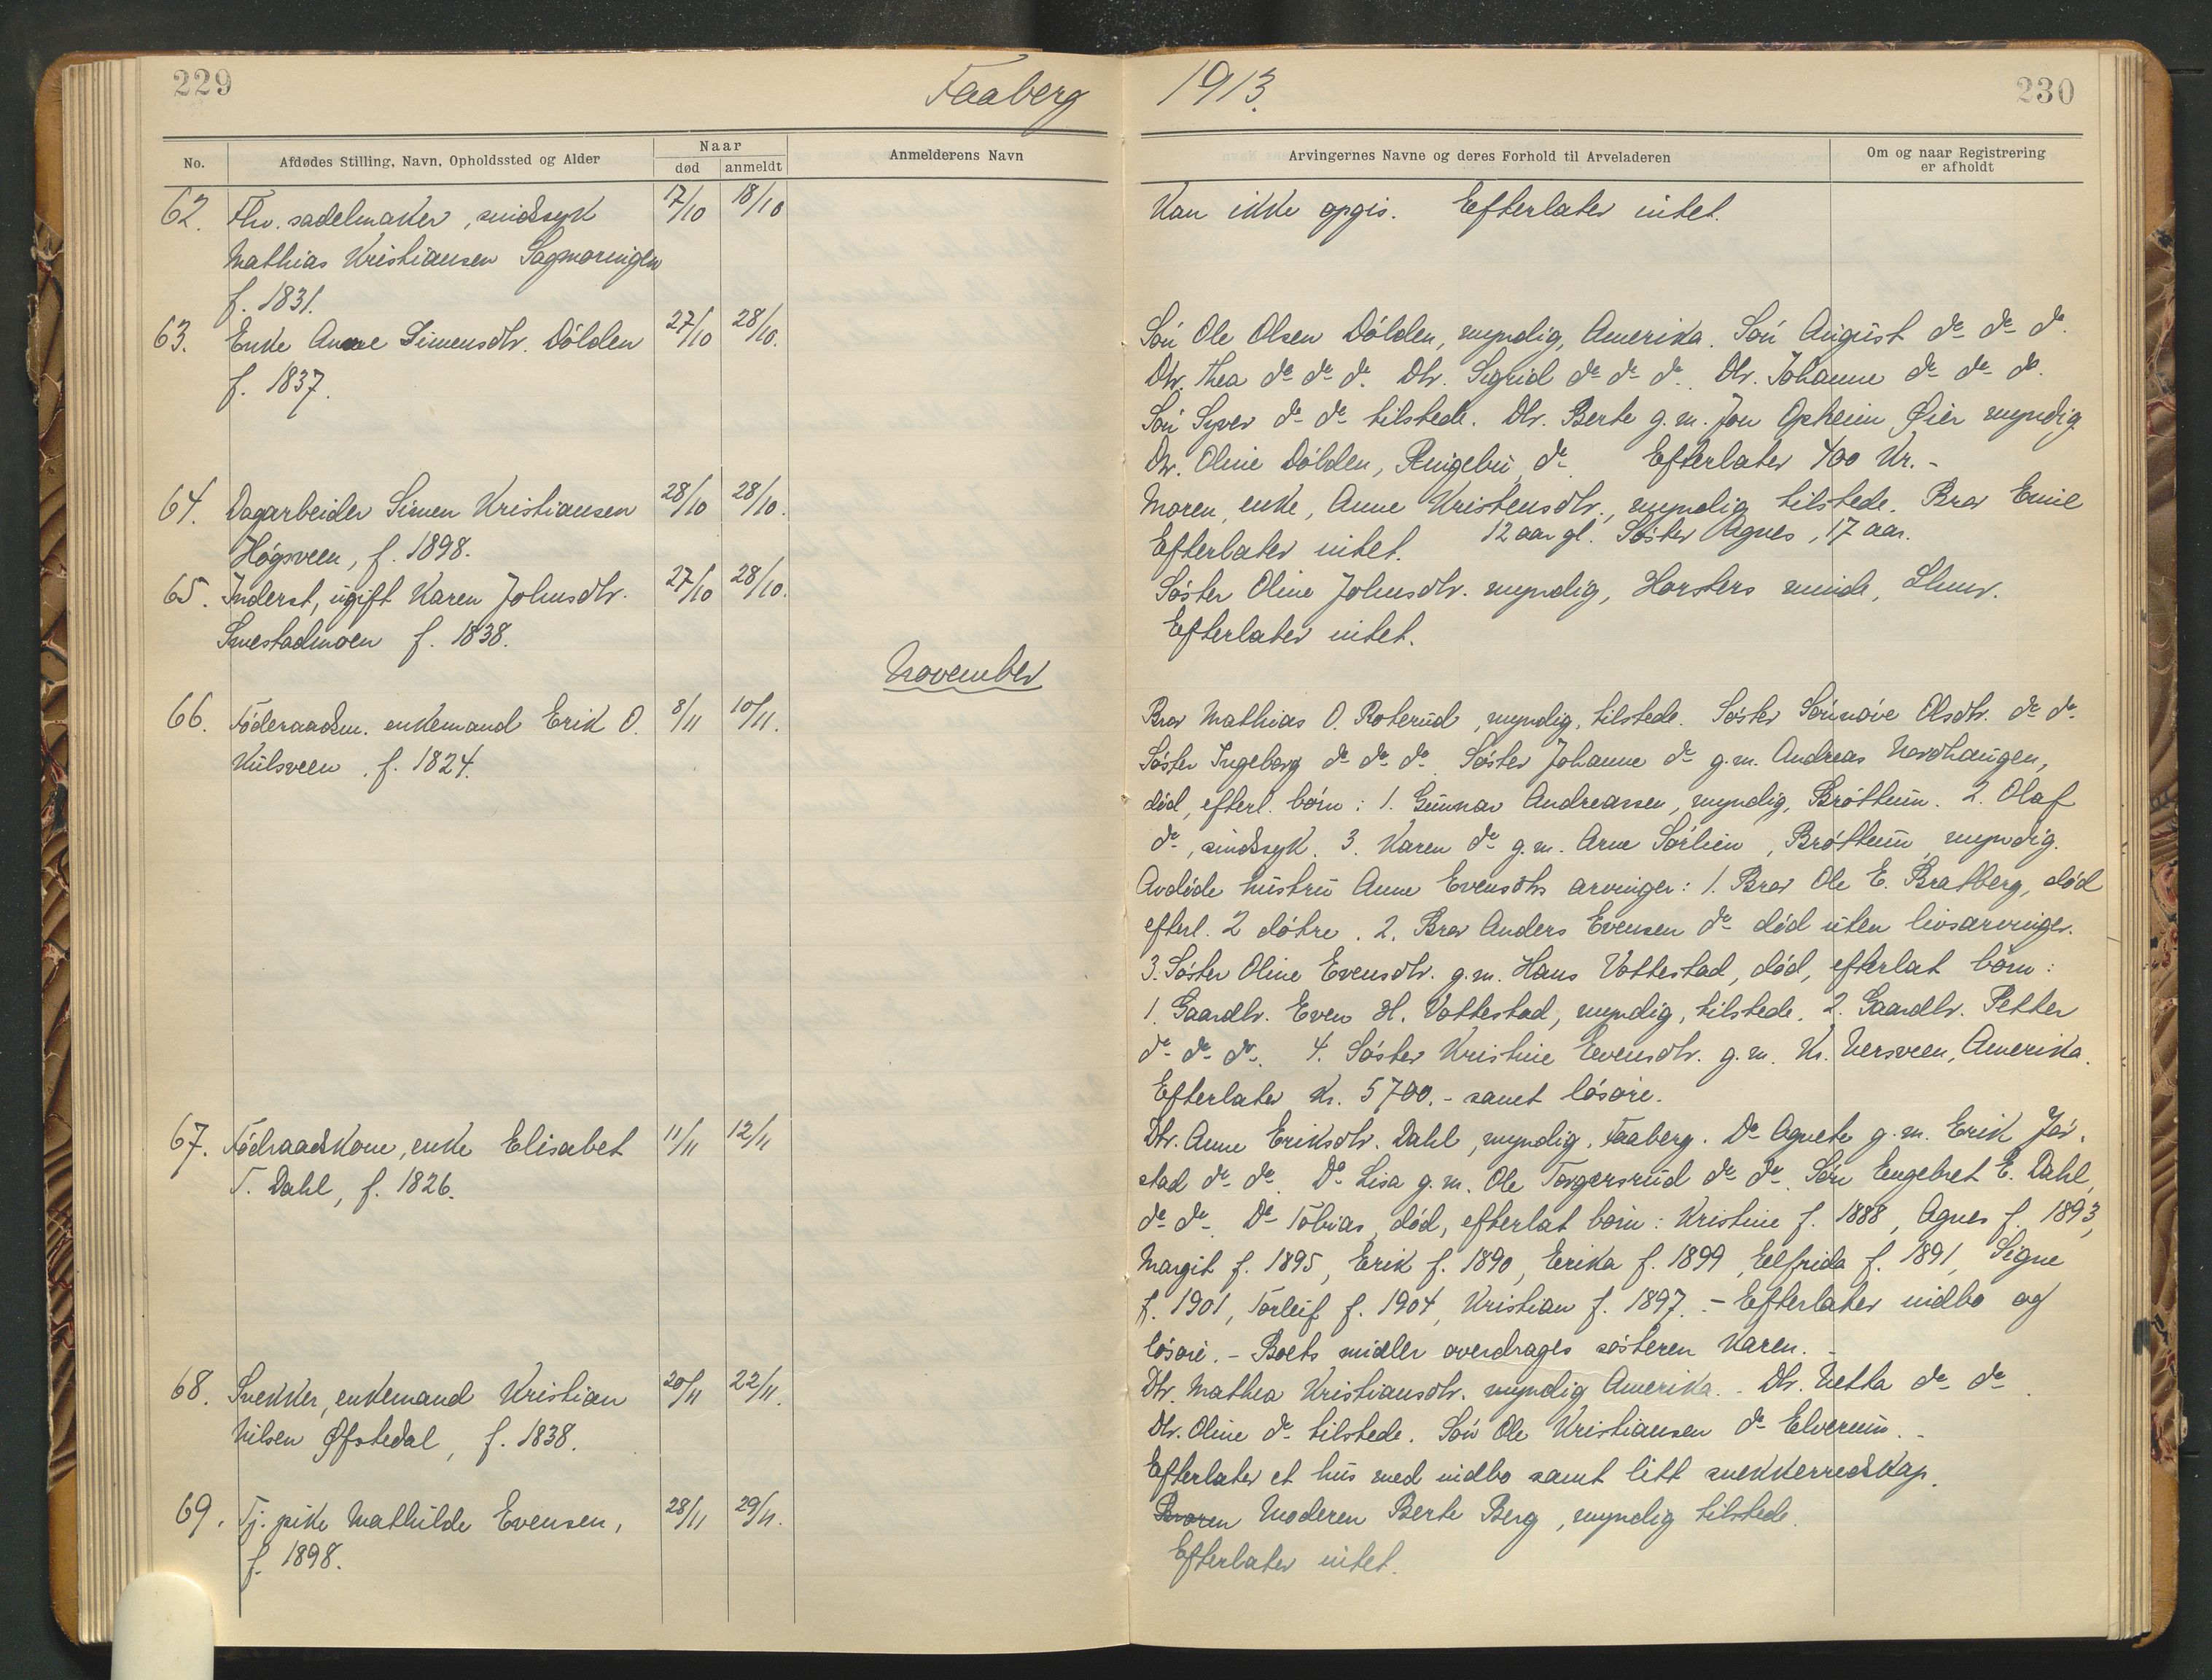 229
Faaberg
1913.
230
No.
Afdødes Stilling, Navn, Opholdssted og Alder
Naar
død
anmeldt
Anmelderens Navn
Arvingernes Navne og deres Forhold til Arveladeren
Om og naar Registrering
er afholdt
62. Fhv. sadelmaker, sindssyk 17/10 18/10
Mathias Kristiansen
f. 1831.
Kan ikke opgis. Efterlater intet.
63. Enke Anne Simensdtr. Dølden 27/10 28/10.
f. 1837.
Søn Ole Olsen Dølden, myndig, Amerika. Søn August do do do.
Dtr. Thea do do do. Dtr. Sigrid do do do. Dtr. Johanne do do do.
Søn Syver do do tilstede. Dtr. Berte g.m. Jon Opheim Øier myndig
Dtr. Oline Dølden, Ringebu, do. Efterlater 400 Kr. -
64. Dagarbeider Simen Kristiansen 28/10 28/10.
Høgsveen, f. 1898.
Moren, enke, Anne Kristensdtr., myndig tilstede. Bror Emil
12 aar gl. Søster Agnes, 17 aar.
Efterlater intet.
65. Inderst, ugift Karen Johnsdtr. 27/10 28/10.
Smestadmoen f. 1838.
Søster Oline Johnsdtr. myndig, Horsters minde, Lhmr.
Efterlater intet.
November
66. Føderaadsm. enkemand Erik O. 8/11 10/11.
Kulsveen, f. 1824.
Bror Mathias O. Roterud, myndig, tilstede. Søster Sønnøve Olsdtr. do do.
Søster Ingeborg do do do. Søster Johanne do g.m. Andreas Nordhaugen,
død, efterl. børn: 1. Gunnar Andreassen, myndig, Brøttum. 2. Olaf
do, sindssyk. 3. Karen do g.m. Arne Sørlien, Brøttum, myndig.
Avdøde hustru Anne Evensdtrs arvinger: 1. Bror Ole E. Bratberg, død
efterl. 2 døtre. 2. Bror Anders Evensen do død uten livsarvinger.
3. Søster Oline Evensdtr. g.m. Hans Vottestad, død, efterlat børn:
1. Gaardbr. Even H. Vottestad, myndig, tilstede. 2. Gaardbr. Petter
do do do. 4. Søster Kristine Evensdtr. g.m. Kr. Nersveen, Amerika.
Efterlater Kr. 5700.- samt løsøre.
67. Fødraadskone, enke Elisabet 11/11 12/11
T. Dahl, f. 1826.
Dtr. Anne Eriksdtr. Dahl, myndig, Faaberg. Do Agnete g.m. Erik Jør-
stad do do. Do Lisa g.m. Ole Torgersrud do do. Søn Engebret E. Dahl,
do do. Do Tobias, død, efterlat børn: Kristine f. 1888, Agnes f. 1893,
Margit f. 1895, Erik f. 1890, Erika f. 1899, Elfrida f. 1891, Signe
f. 1901, Torleif f. 1904, Kristian f. 1897. - Efterlater indbo og
løsøre. - Boets midler overdrages søsteren Karen. -
68. Snekker, enkemand Kristian 20/11 22/11.
Nilsen Øfstedal, f. 1838.
Dtr. Mathea Kristiansdtr. myndig Amerika. - Dtr. Netta do do.
Dtr. Oline do tilstede. Søn Ole Kristiansen do Elverum. -
Efterlater et hus med indbo samt litt snekkerredskap.
69. Tj. pike Mathilde Evensen, 28/11 29/11.
f. 1898.
Broren Moderen Berte Berg, myndig tilstede.
Efterlater intet.